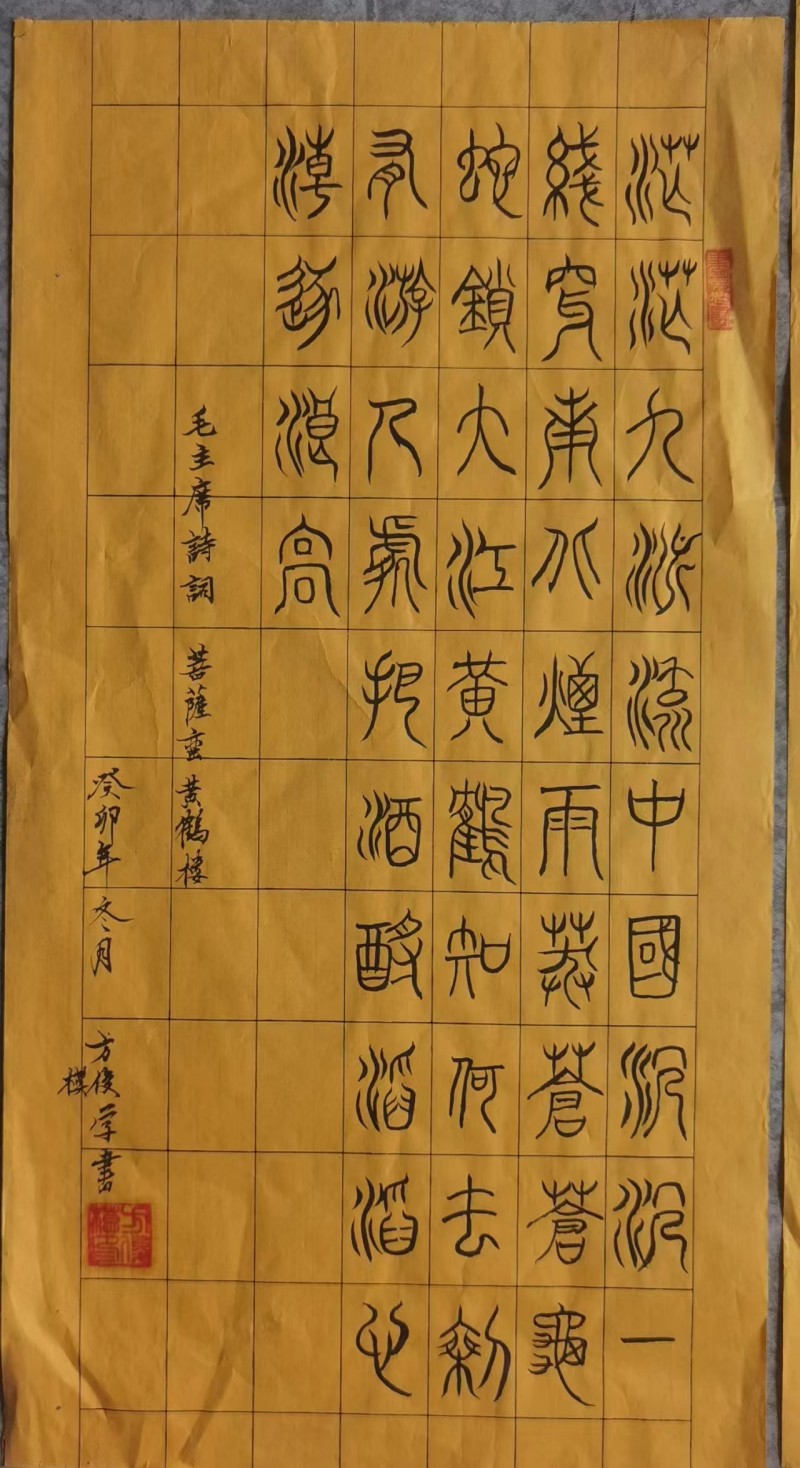 茫茫九派流中國沉沉一
綫穿南北煙雨莽蒼蒼龜
蛇鎖大江黃鶴知何去剩
有游人處把酒酹滔滔心
潮逐浪高
毛主席詩詞 菩薩蛮 黄鶴樓
癸卯年冬月 方俊学書